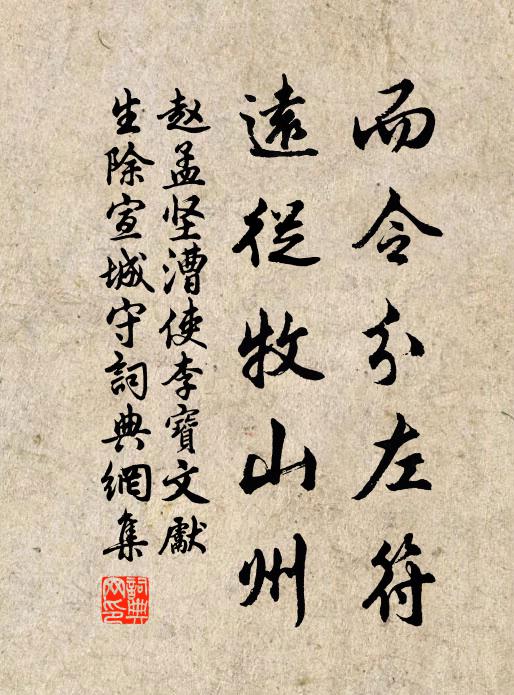 而令分左符
遠從牧山州
赵孟坚漕使李寶文獻
生除宣城守詞典網集
詞典网印